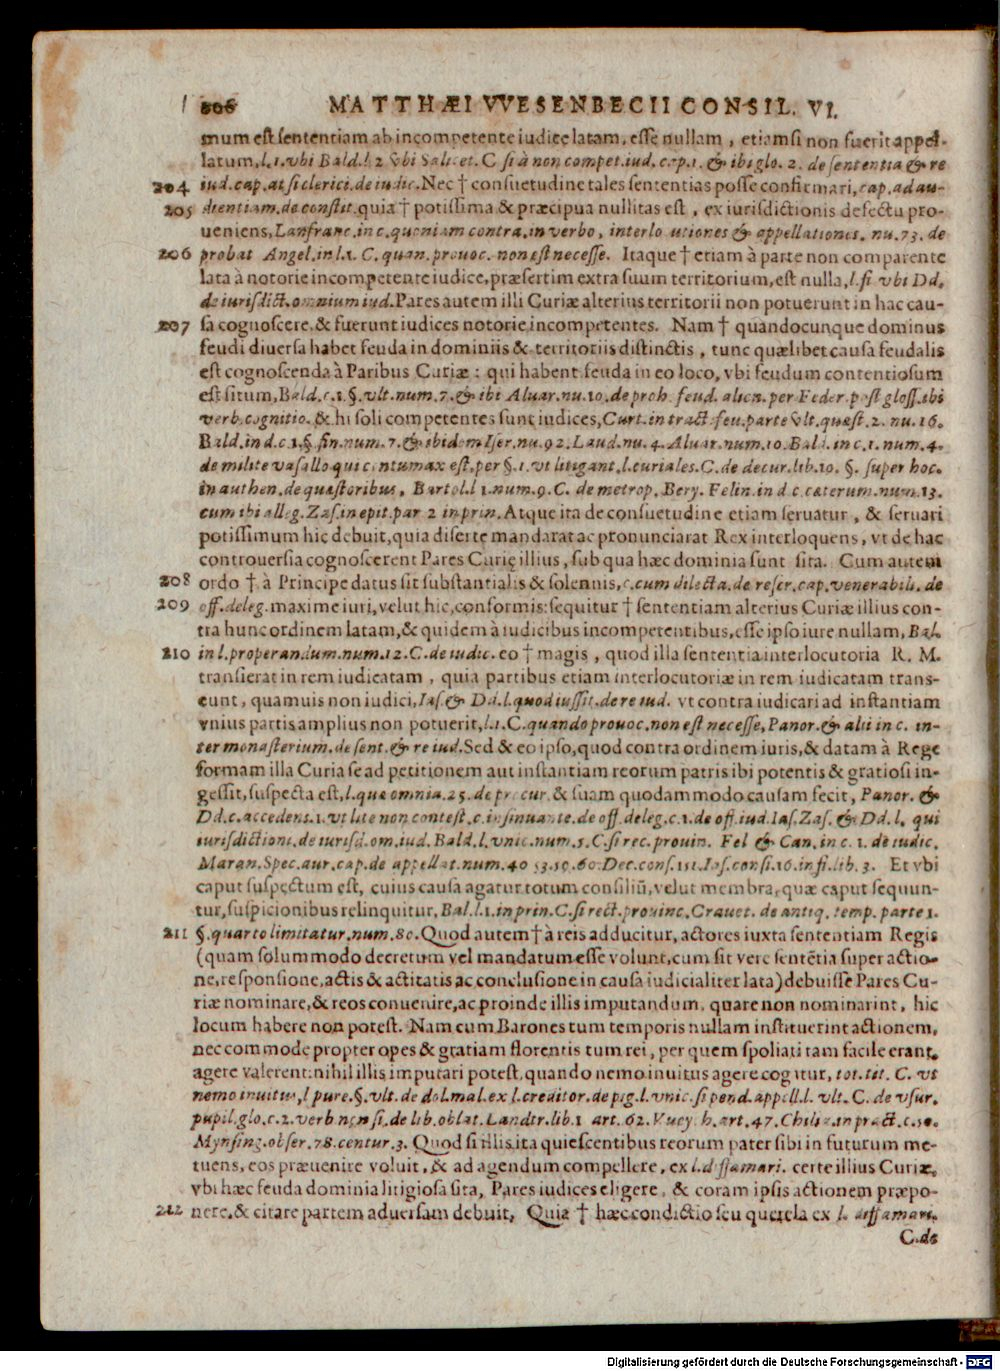 206 MATTHÆI VVESENBECII CONSIL. VI.
mum est sententiam ab incompetente iudice latam, esse nullam, etiamsi non fuerit appel-
latum, l. 1. vbi Bald. l. 2. vbi Salicet. C. si à non compet. iud. cap. 1. & ibi glo. 2. de sententia & re
204 iud. cap. at si clerici. de iudic. Nec † consuetudine tales sententias posse confirmari, cap. ad au-
205 dientiam. de constit. quia † potissima & præcipua nullitas est, ex iurisdictionis defectu pro-
ueniens, Lanfranc. in c. quoniam contra. in verbo, interlocutiones & appellationes. nu. 73. de
206 probat Angel. in l. 1. C. quan. prouoc. non est necesse. Itaque † etiam à parte non comparente
lata à notorie incompetente iudice, præsertim extra suum territorium, est nulla, l. fi. vbi Dd.
de iurisdict. omnium iud. Pares autem illi Curiæ alterius territorii non potuerunt in hac cau-
207 sa cognoscere, & fuerunt iudices notorie incompetentes. Nam † quandocunque dominus
feudi diuersa habet feuda in dominiis & territoriis distinctis, tunc quælibet causa feudalis
est cognoscenda à Paribus Curiæ: qui habent feuda in eo loco, vbi feudum contentiosum
est situm, Bald. c. 1. §. vlt. num. 7. & ibi Aluar. nu. 10. de proh. feud. alien. per Feder. post gloss. ibi
verb. cognitio. & hi soli competentes sunt iudices, Curt. in tract. feu. parte vlt. quæst. 2. nu. 16.
Bald. in d. c. 1. §. fin. num. 7. & ibidem Iser. nu. 92. Laud. nu. 4. Aluar. num. 10. Bald. in c. 1. num. 4.
de milite vasallo qui contumax est. per §. 1. vt litigant. l. curiales. C. de decur. lib. 10. §. super hoc.
in authen. de quæstoribus. Bartol. l 1. num. 9. C. de metrop. Bery. Felin. in d. c. cæterum. num. 13.
cum ibi alleg. Zas. in epit. par 2 in prin. Atque ita de consuetudine etiam seruatur, & seruari
potissimum hic debuit, quia diserte mandarat ac pronunciarat Rex interloquens, vt de hac
controuersia cognoscerent Pares Curię illius, sub qua hæc dominia sunt sita. Cum autem
208 ordo † à Principe datus sit substantialis & solennis, c. cum dilecta. de rescr. cap. venerabili. de
209 off. deleg. maxime iuri, velut hic, conformis: sequitur † sententiam alterius Curiæ illius con-
tra hunc ordinem latam, & quidem à iudicibus incompetentibus, esse ipso iure nullam, Bal.
210 in l. properandum. num. 12. C. de iudic. eo † magis, quod illa sententia interlocutoria R. M.
transierat in rem iudicatam, quia partibus etiam interlocutoriæ in rem iudicatam trans-
eunt, quamuis non iudici, Ias. & Dd. l. quod iussit. de re iud. vt contra iudicari ad instantiam
vnius partis amplius non potuerit, l. 1. C. quando prouoc. non est necesse, Panor. & alii in c. in-
ter monasterium. de sent. & re iud. Sed & eo ipso, quod contra ordinem iuris, & datam à Rege
formam illa Curia se ad petitionem aut instantiam reorum patris ibi potentis & gratiosi in-
gessit, suspecta est, l. quæ omnia. 25. de procur. & suam quodammodo causam fecit, Panor. &
Dd. c. accedens. 1. vt lite non contest. c. insinuante. de off. deleg. c. 1. de off. iud. Ias. Zas. & Dd. l. qui
iurisdictioni. de iurisd. om. iud. Bald. l. vnic. num. 5. C. si rec. prouin. Fel & Can. in c. 1. de iudic.
Maran. Spec. aur. cap. de appellat. num. 40 53. 59. 60. Dec. cons. 151. Ias. consi. 16. in fi. lib. 3. Et vbi
caput suspectum est, cuius causa agatur totum consiliū, velut membra, quæ caput sequun-
tur, suspicionibus relinquitur, Bal. l. 1. in prin. C. si rect. prouinc. Crauet. de antiq. temp. parte 1.
211 §. quarto limitatur. num. 80. Quod autem † à reis adducitur, actores iuxta sententiam Regis
(quam solummodo decretum vel mandatum esse volunt, cum sit vere sentētia super actio-
ne, responsione, actis & actitatis ac conclusione in causa iudicialiter lata) debuisse Pares Cu-
riæ nominare, & reos conuenire, ac proinde illis imputandum, quare non nominarint, hic
locum habere non potest. Nam cum Barones tum temporis nullam instituerint actionem,
nec commode propter opes & gratiam florentis tum rei, per quem spoliati tam facile erant,
agere valerent: nihil illis imputari potest, quando nemo inuitus agere cogitur, tot. tit. C. vt
nemo inuitus, l pure. §. vlt. de dol. mal. ex l. creditor. de pig. l. vnic. si pend. appell. l. vlt. C. de vsur.
pupil. glo. c. 2. verb non si. de lib. oblat. Landtr. lib. 1 art. 62. Vuey h. art. 47. Chiliz. in pract. c. 50.
Mynsing. obser. 78. centur. 3. Quod si illis ita quiescentibus reorum pater sibi in futurum me-
tuens, eos præuenire voluit, & ad agendum compellere, ex l. diffamari. certe illius Curiæ,
vbi hæc feuda dominia litigiosa sita, Pares iudices eligere, & coram ipsis actionem præpo-
212 nere, & citare partem aduersam debuit, Quia † hæc condictio seu querela ex l. diffamari.
C. de
Digitalisierung gefördert durch die Deutsche Forschungsgemeinschaft - DFG